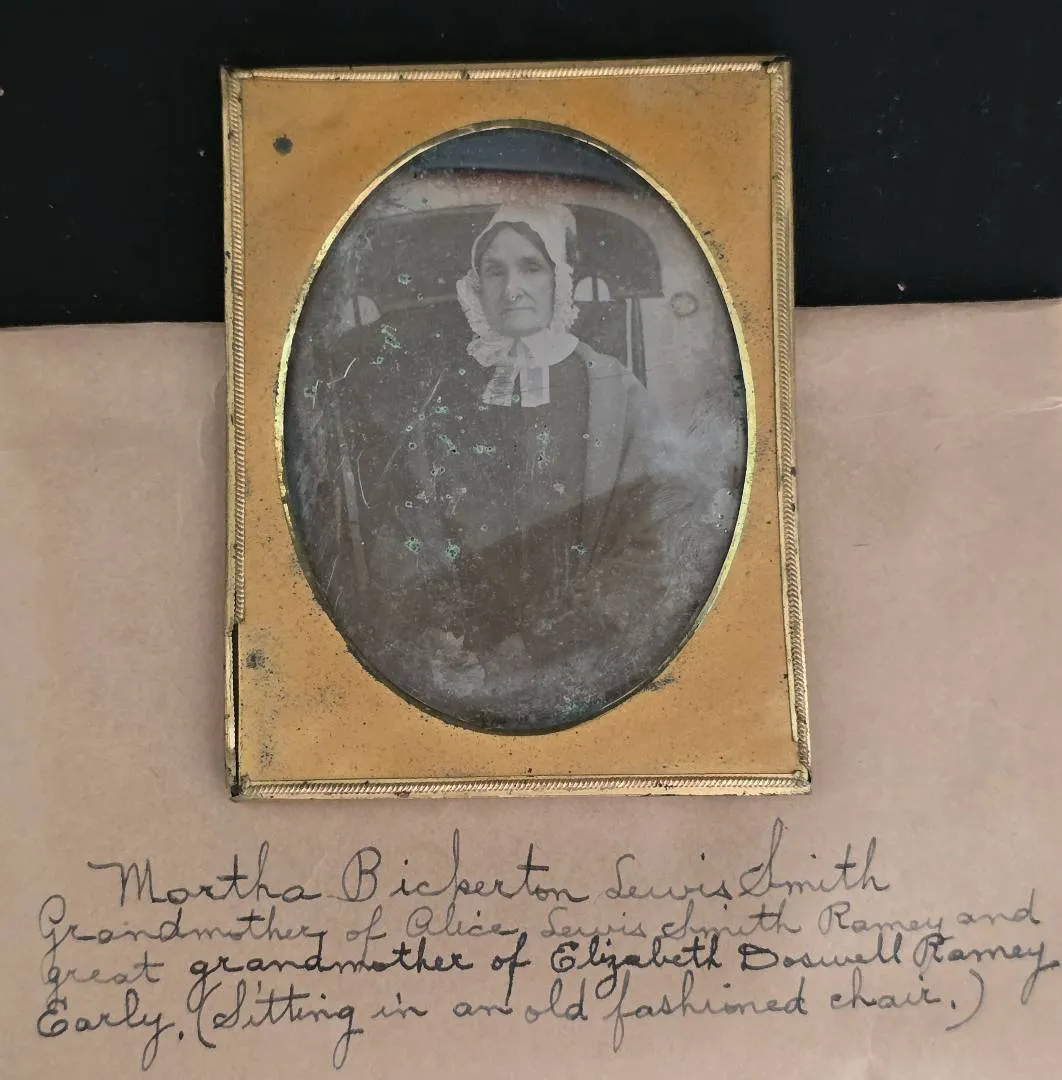 Martha Bickerton Lewis Smith
Grandmother of Alice Lewis Smith Ramey and
great grandmother of Elizabeth Doswell Ramey
Early. (Sitting in an old fashioned chair.)